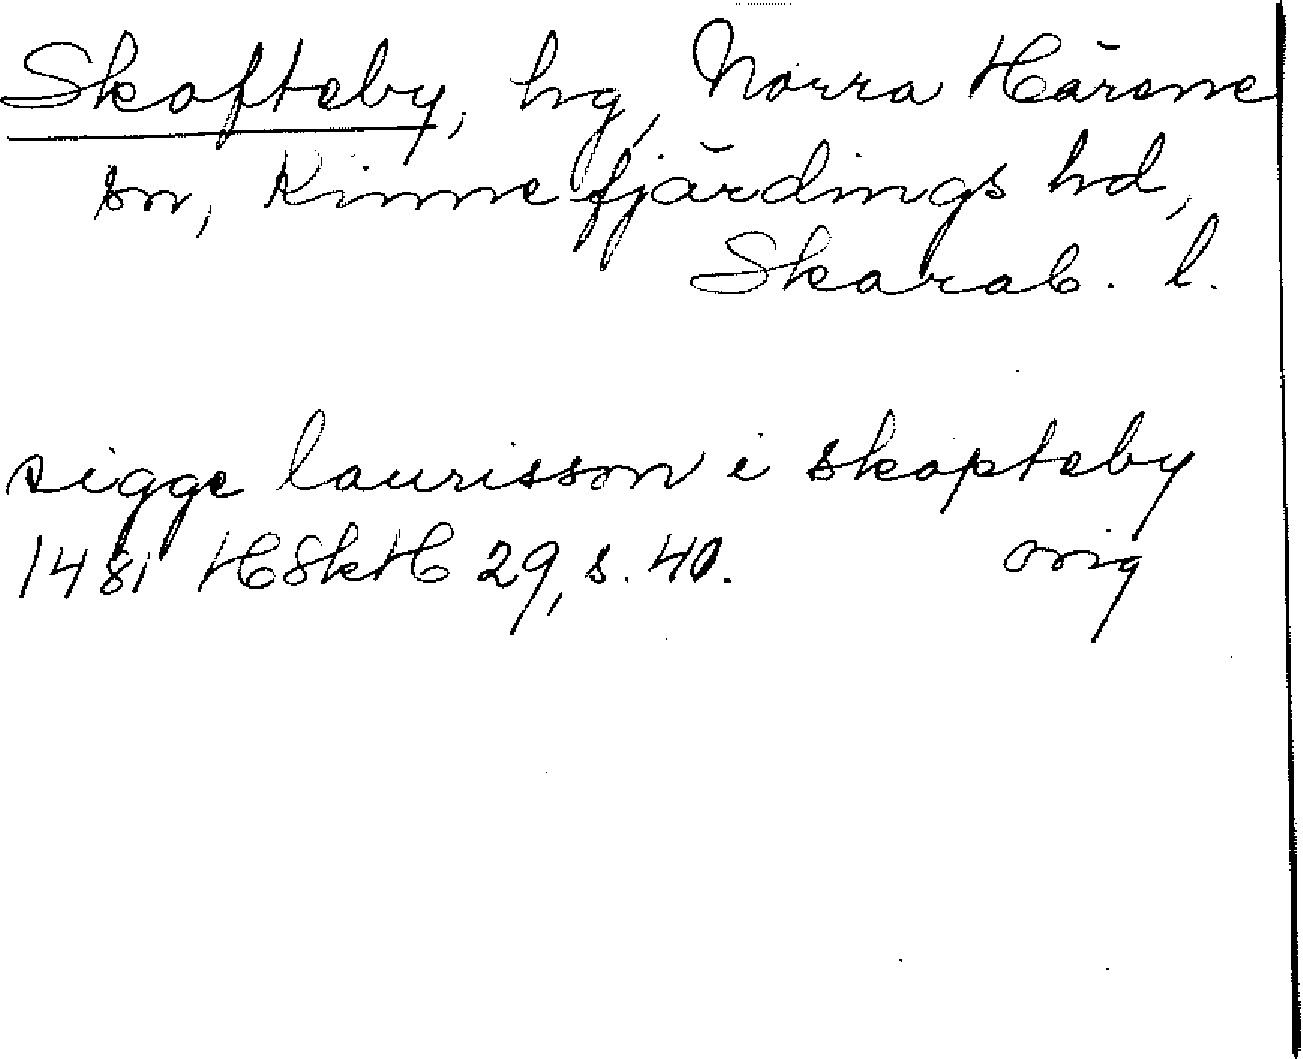 Skofteby, hg, Norra Härene
sn, Kinnefjärdings hd,
Skarab. l.
sigge laurisson i skopteby
1481 HSkH 29, s. 40. orig